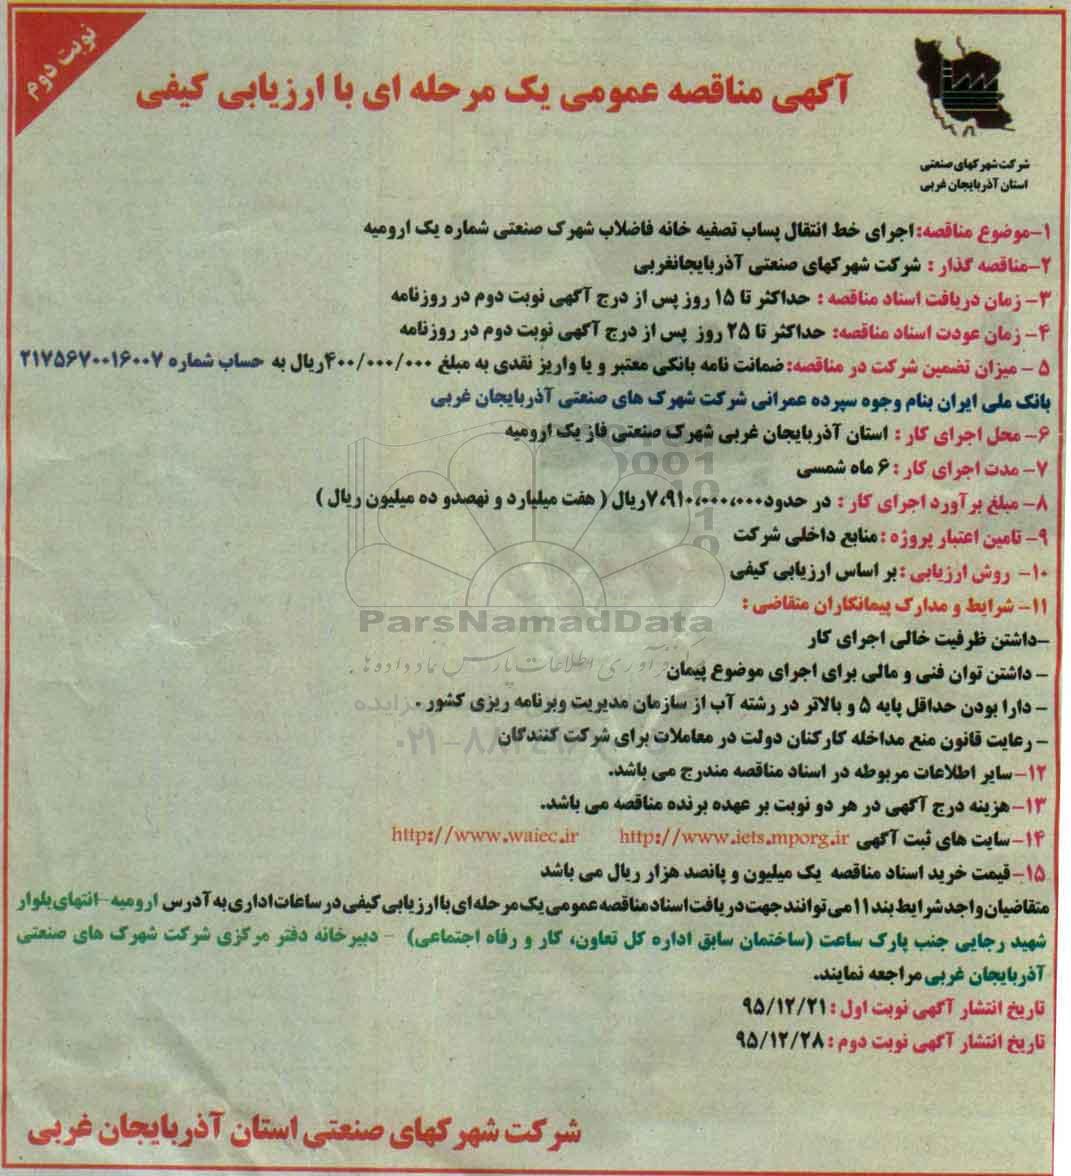 نوبت دوم
آگهی مناقصه عمومی یک مرحله ای با ارزیابی کیفی
شرکت شهرکهای صنعتی
استان آذربایجان غربی
۱-موضوع مناقصه: اجرای خط انتقال پساب تصفیه خانه فاضلاب شهرک صنعتی شماره یک ارومیه
۲-مناقصه گذار : شرکت شهرکهای صنعتی آذربایجانغربی
۳- زمان دریافت اسناد مناقصه : حداکثر تا ۱۵ روز پس از درج آگهی نوبت دوم در روزنامه
۴- زمان عودت اسناد مناقصه: حداکثر تا ۲۵ روز پس از درج آگهی نوبت دوم در روزنامه
۵ - میزان تضمین شرکت در مناقصه: ضمانت نامه بانکی معتبر و یا واریز نقدی به مبلغ ۴۰۰/۰۰۰/۰۰۰ریال به حساب شماره ۲۱۷۵۶۷۰۰۱۶۰۰۷
بانک ملی ایران بنام وجوه سپرده عمرانی شرکت شهرک های صنعتی آذربایجان غربی
۶- محل اجرای کار : استان آذربایجان غربی شهرک صنعتی فاز یک ارومیه
۷- مدت اجرای کار : ۶ ماه شمسی
۸- مبلغ برآورد اجرای کار : در حدود۷،۹۱۰،۰۰۰،۰۰۰ریال ( هفت میلیارد و نهصدو ده میلیون ریال )
۹- تامین اعتبار پروژه : منابع داخلی شرکت
۱۰- روش ارزیابی : بر اساس ارزیابی کیفی
۱۱- شرایط و مدارک پیمانکاران متقاضی :
-داشتن ظرفیت خالی اجرای کار
ParsNamadData
- داشتن توان فنی و مالی برای اجرای موضوع پیمان
- دارا بودن حداقل پایه ۵ و بالاتر در رشته آب از سازمان مدیریت وبرنامه ریزی کشور .
- رعایت قانون منع مداخله کارکنان دولت در معاملات برای شرکت کنندگان
۱۲-سایر اطلاعات مربوطه در اسناد مناقصه مندرج می باشد.
۱۳-هزینه درج آگهی در هر دو نوبت بر عهده برنده مناقصه می باشد.
۱۴-سایت های ثبت آگهی http://www.iets.mporg.ir http://www.waiec.ir
۱۵-قیمت خرید اسناد مناقصه یک میلیون و پانصد هزار ریال می باشد
متقاضیان واجد شرایط بند ۱۱ می توانند جهت دریافت اسناد مناقصه عمومی یک مرحله ای با ارزیابی کیفی در ساعات اداری به آدرس ارومیه-انتهای بلوار
شهید رجایی جنب پارک ساعت (ساختمان سابق اداره کل تعاون، کار و رفاه اجتماعی) - دبیرخانه دفتر مرکزی شرکت شهرک های صنعتی
آذربایجان غربی مراجعه نمایند.
تاریخ انتشار آگهی نوبت اول : ۹۵/۱۲/۲۱
تاریخ انتشار آگهی نوبت دوم : ۹۵/۱۲/۲۸
شرکت شهرکهای صنعتی استان آذربایجان غربی